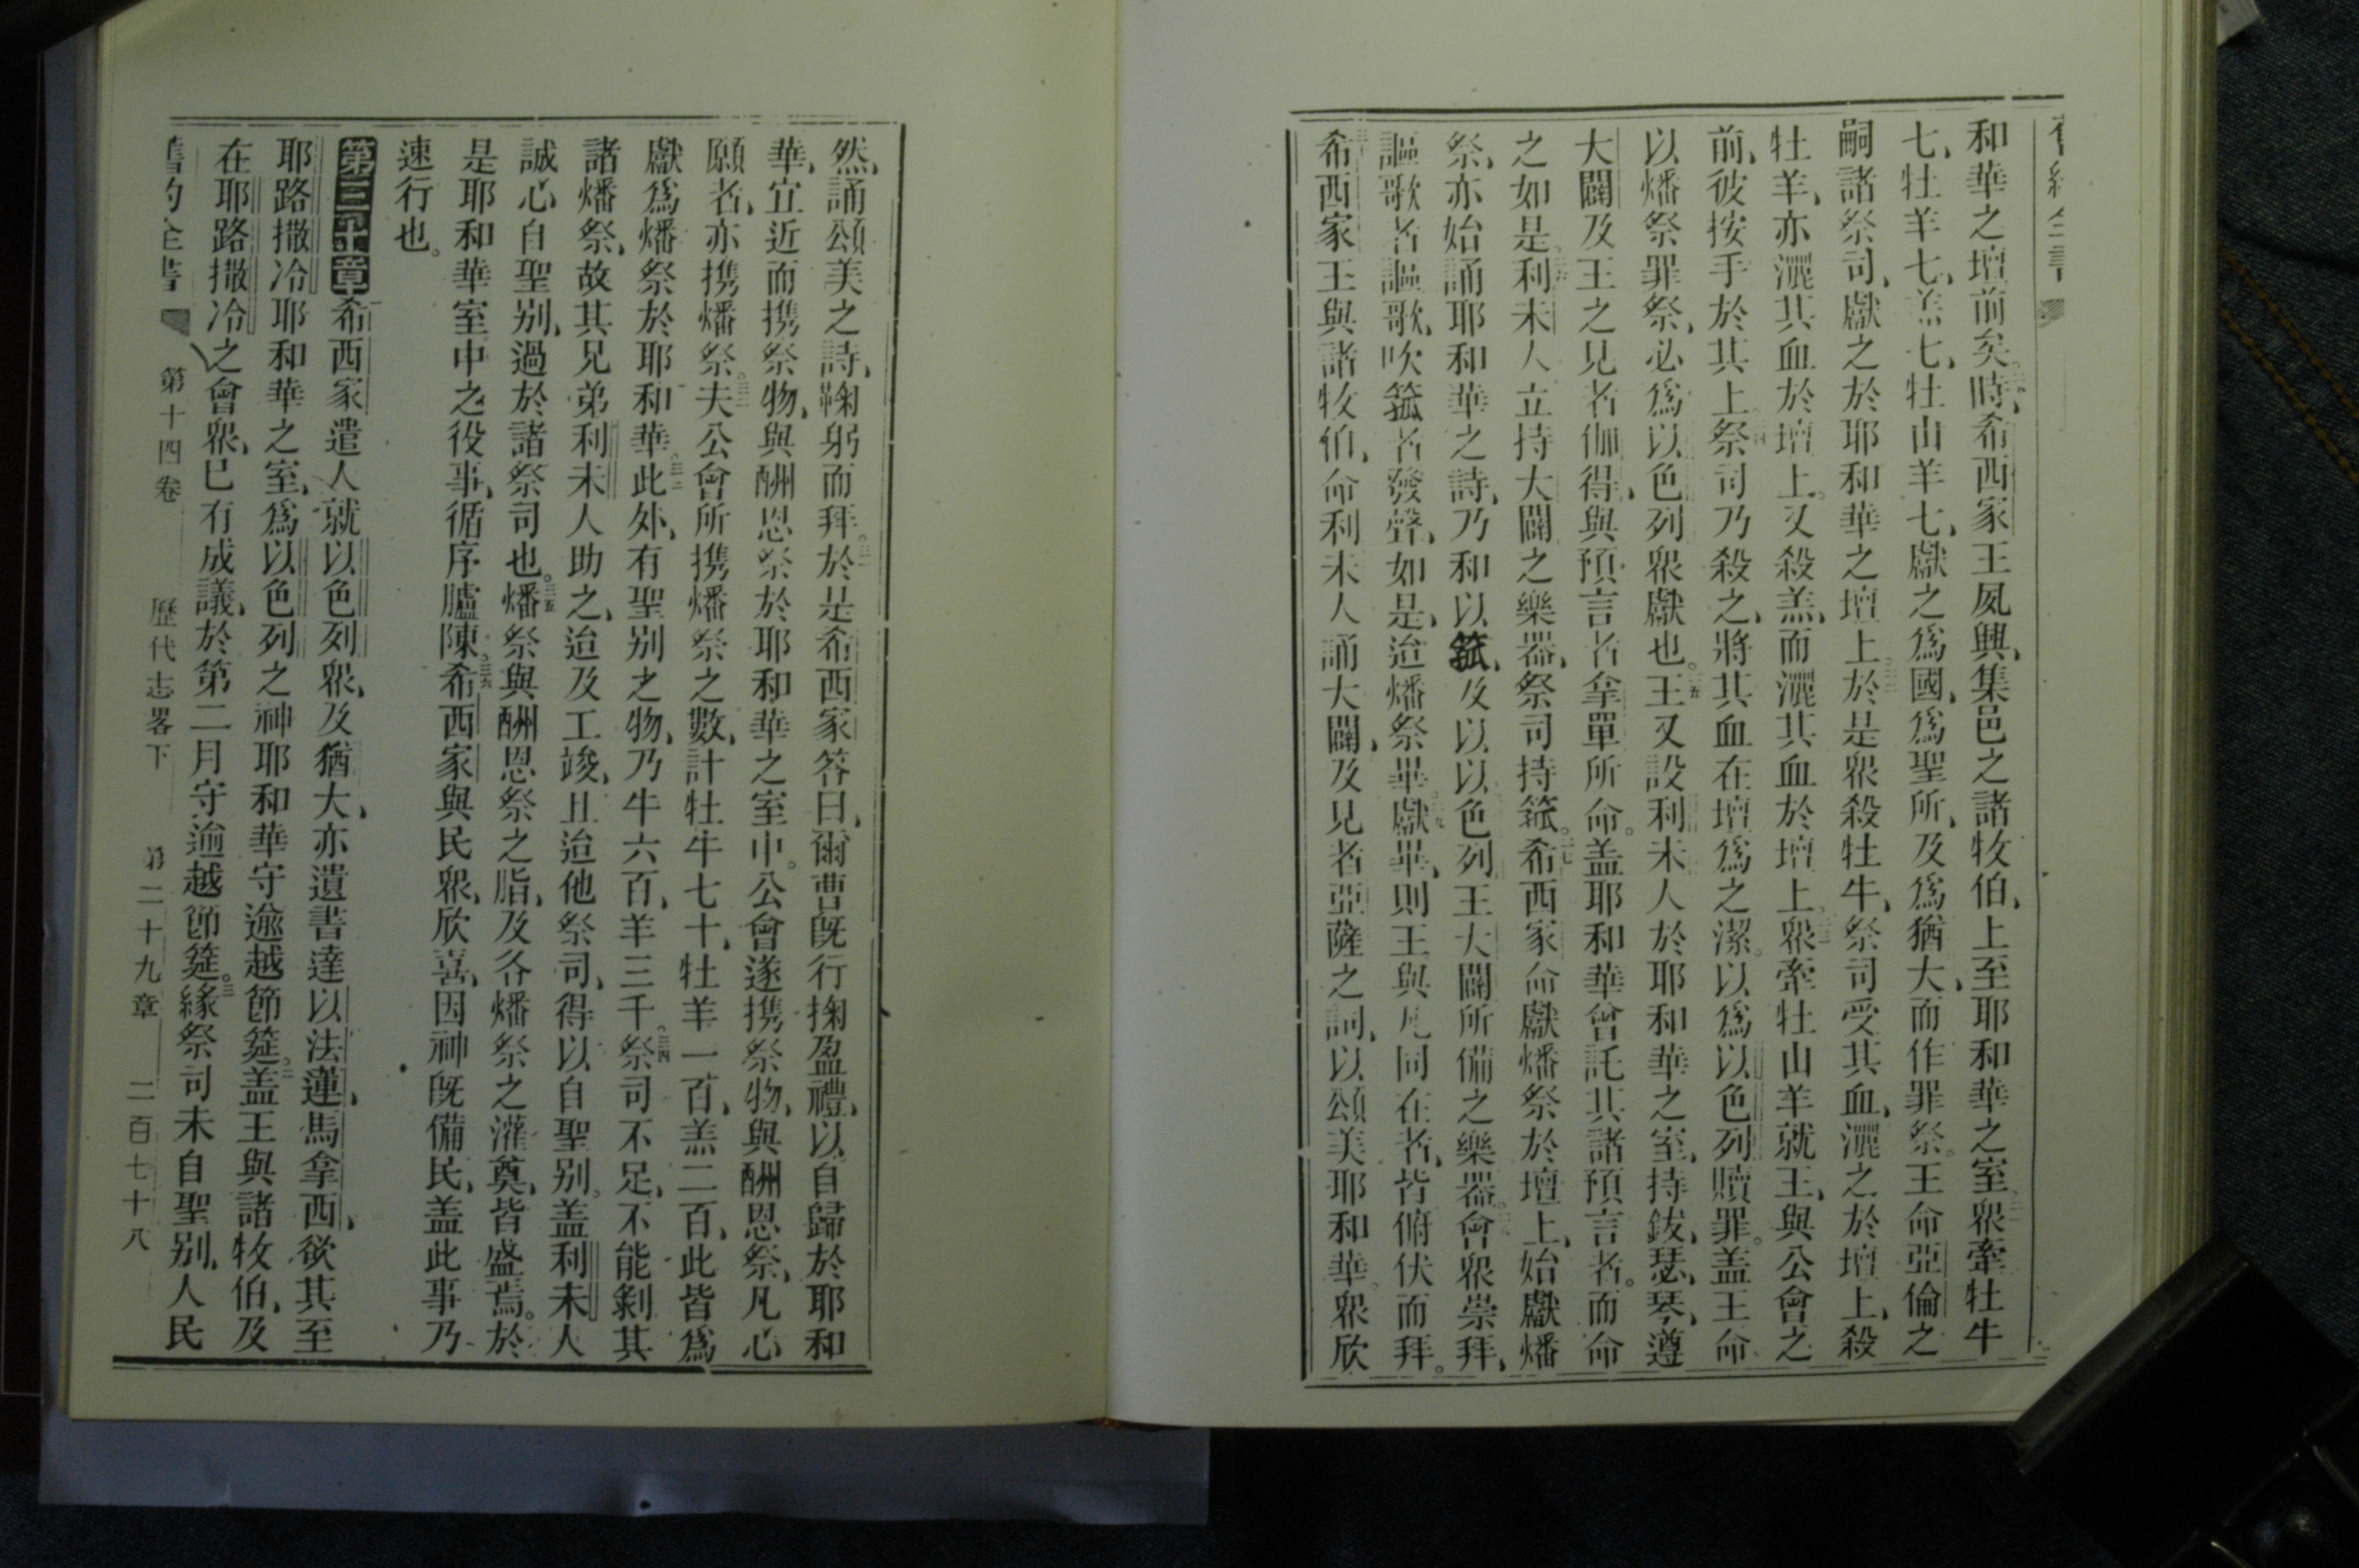 和華之壇前矣。時希西家王夙興、集邑之諸牧伯、上至耶和華之室。衆牽牡牛
七、牡羊七、羔七、牡山羊七、獻之爲國、爲聖所、及爲猶大而作罪祭。王命亞倫之
嗣諸祭司、獻之於耶和華之壇上。於是衆殺牡牛、祭司受其血、灑之於壇上、殺
牡羊、亦灑其血於壇上。又殺羔、而灑其血於壇上。衆牽牡山羊就王、與公會之
前、彼按手於其上。祭司乃殺之、將其血在壇爲之潔。以爲以色列贖罪。盖王命
以燔祭罪祭、必爲以色列衆獻也。王又設利未人於耶和華之室、持鈸、瑟、琴、遵
大闢及王之見者伽得、與預言者拿單所命。盖耶和華曾託其諸預言者。而命
之如是。利未人立持大闢之樂器、祭司持箛。希西家命獻燔祭於壇上、始獻燔
祭、亦始誦耶和華之詩、乃和以箛、及以以色列王大闢所備之樂器。會衆崇拜、
謳歌者謳歌、吹箛者發聲、如是、迨燔祭畢。獻畢、則王與凡同在者、皆俯伏而拜。
希西家王與諸牧伯、命利未人誦大闢、及見者亞薩之詞、以頌美耶和華。衆欣
然、誦頌美之詩、鞠躬而拜。於是希西家答曰、爾曹既行掬盈禮、以自歸於耶和
華、宜近而携祭物、與酬恩祭於耶和華之室中。公會遂携祭物、與酬恩祭、凡心
願者、亦携燔祭。夫公會所携燔祭之數、計牡牛七十、牡羊一百、羔二百、此皆爲
獻爲燔祭於耶和華。此外、有聖别之物、乃牛六百、羊三千。祭司不足、不能剝其
諸燔祭、故其兄弟利未人助之、迨及工竣、且迨他祭司、得以自聖别。盖利未人
誠心自聖别、過於諸祭司也。燔祭與酬恩祭之脂、及各燔祭之灌奠、皆盛焉。於
是耶和華室中之役事、循序臚陳。希西家與民衆、欣喜、因神既備民、盖此事乃
速行也。
第三十章希西家遣人就以色列衆、及猶大、亦遺書達以法蓮、馬拿西、欲其至
耶路撒冷耶和華之室、爲以色列之神耶和華守逾越節筵。盖王與諸牧伯、及
在耶路撒冷之會衆、已有成議、於第二月守逾越節筵。緣祭司未自聖别、人民
第十四卷 歷代志畧下 第二十九章 二百七十八